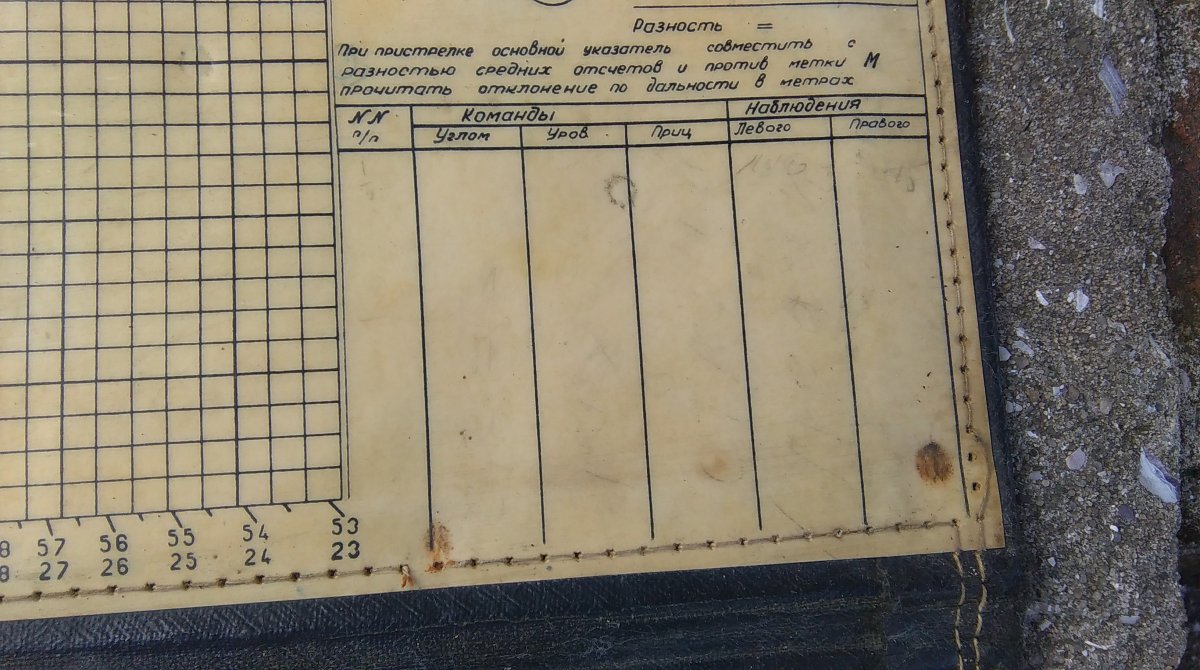 Разность =
При пристрелке основной указатель совместить с
разностью средних отсчетов и против метки М
прочитать отклонение по дальности в метрах
NN п/п Команды Наблюдения
Углом Уров. Приц Левого Правого
8 57 56 55 54 53
8 27 26 25 24 23